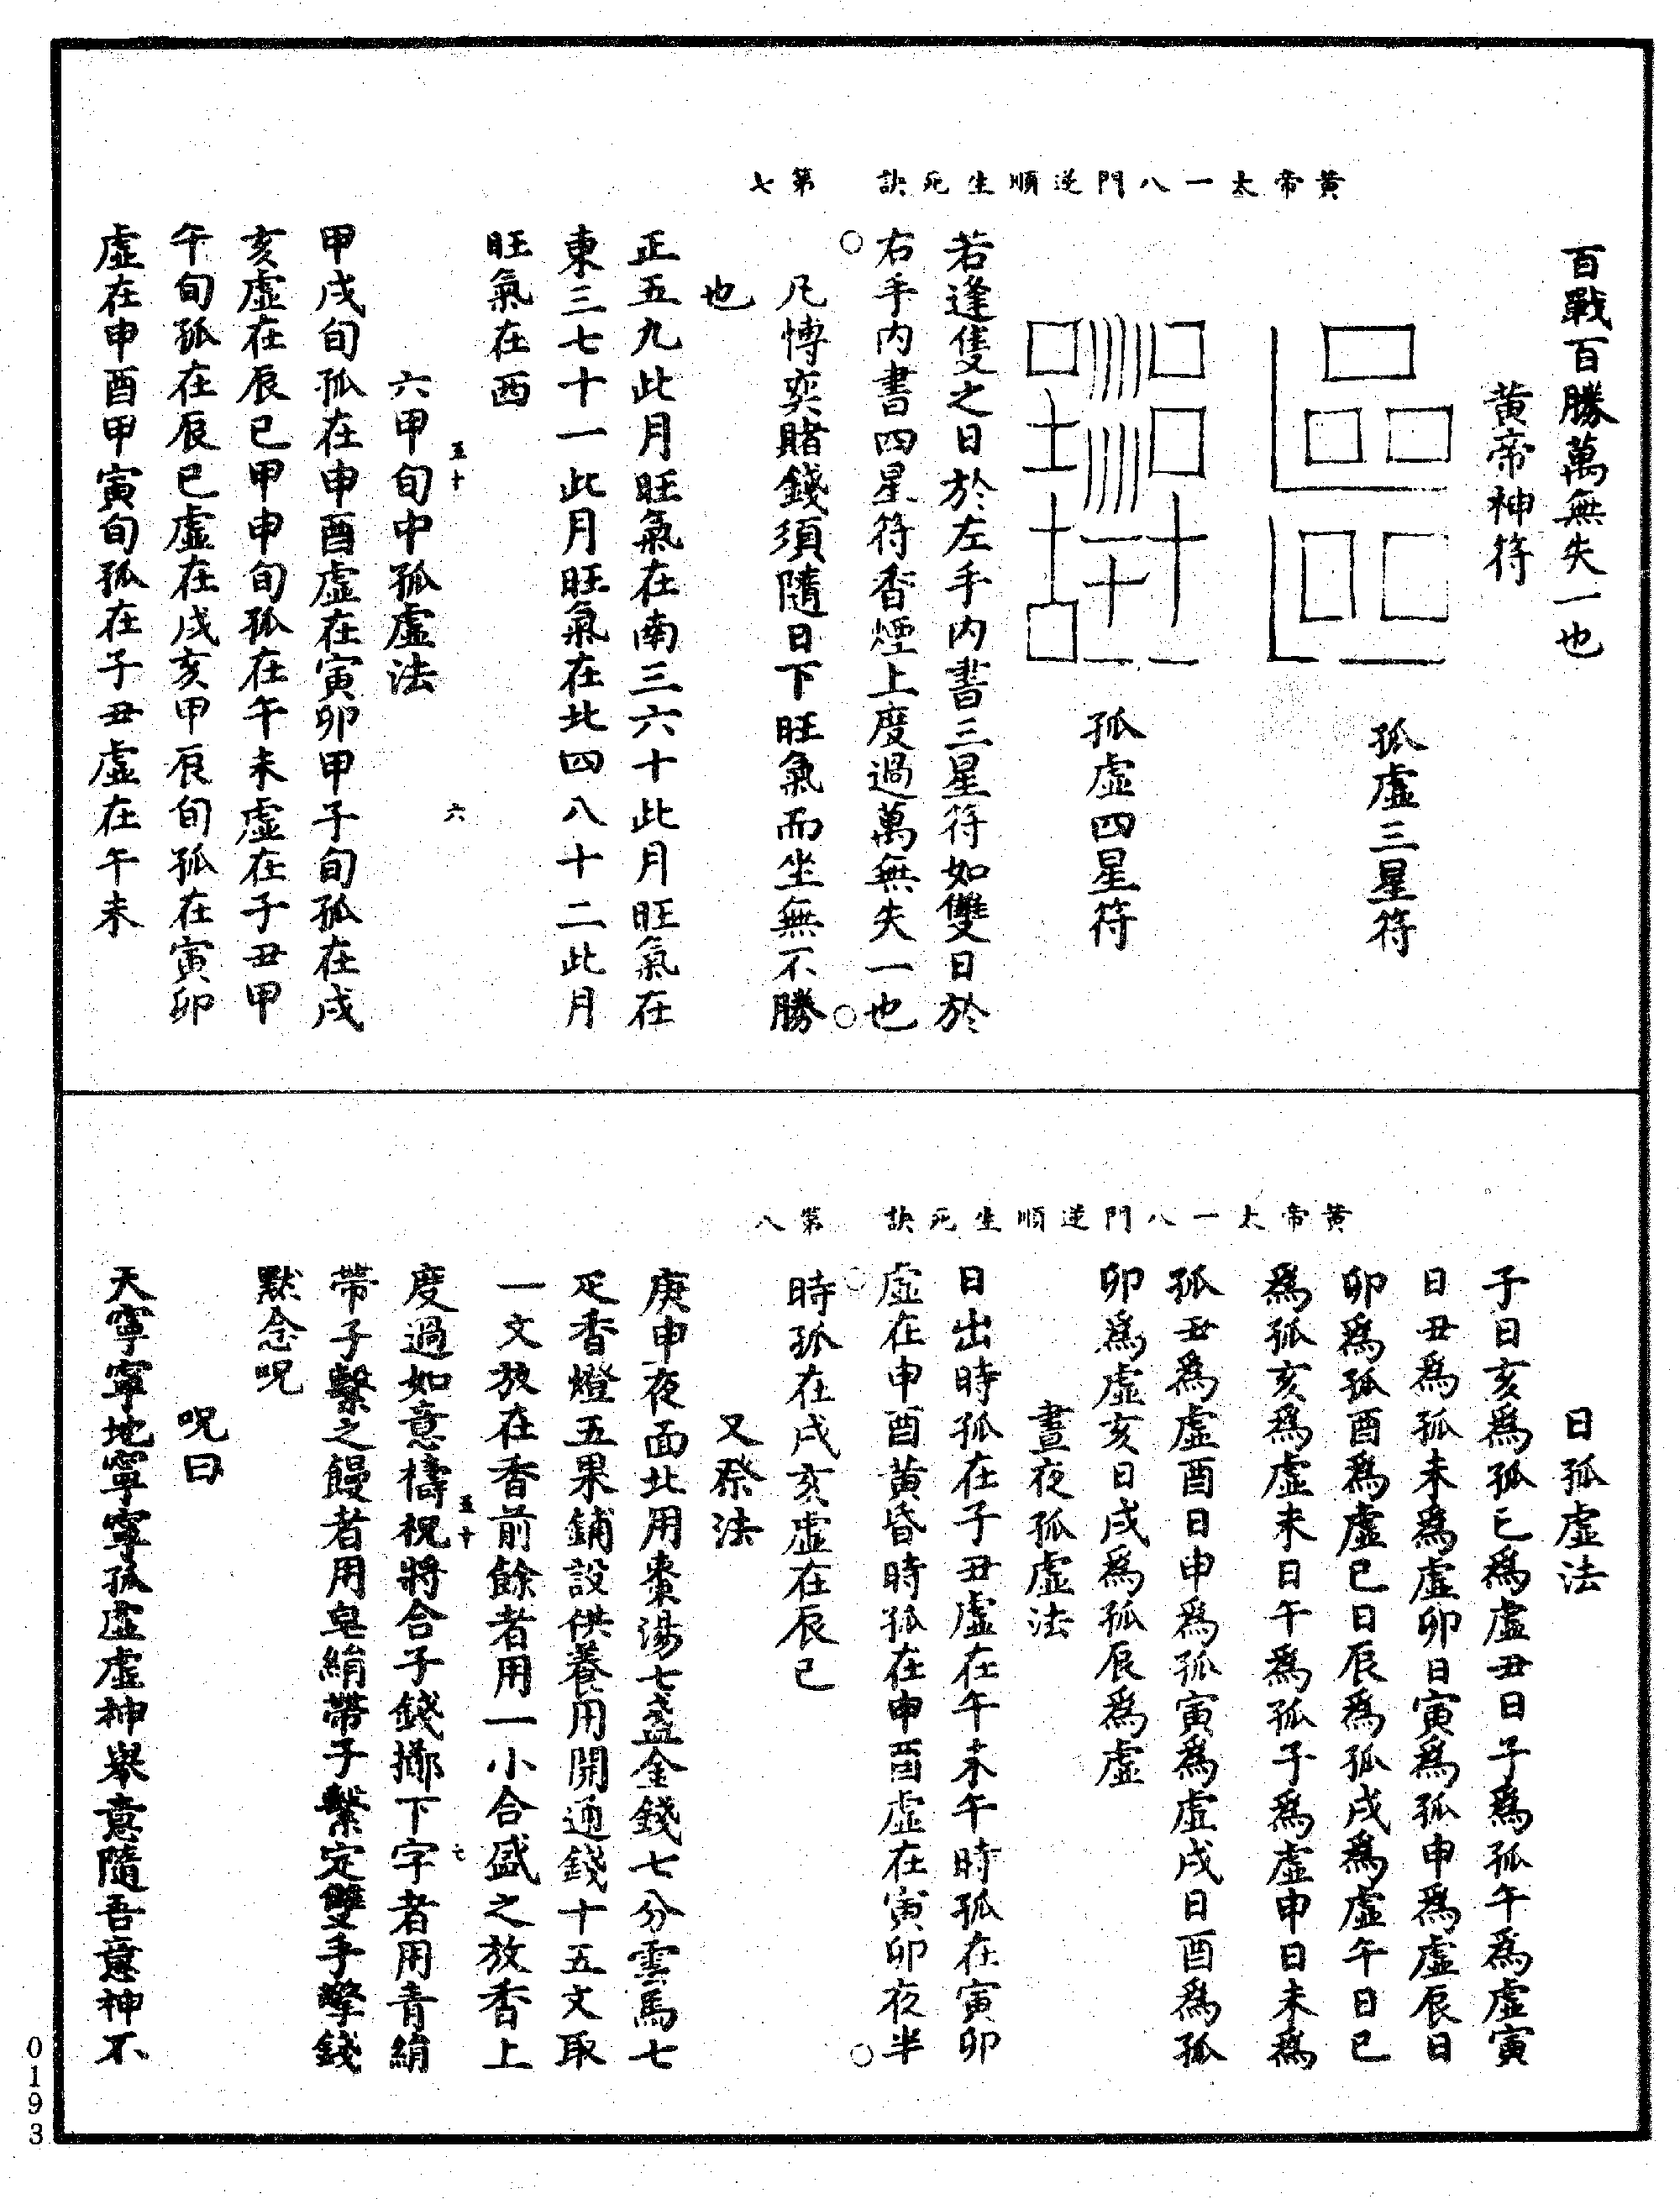 黃帝太一八門逆順生死訣　第七
百戰百勝萬無失一也
黃帝神符
孤虛三星符
孤虛四星符
若逢隻之日於左手內書三星符如雙日於
右手內書四星符香煙上度過萬無失一也
凡愽奕賭錢須隨日下旺氣而坐無不勝
也
正五九此月旺氣在南三六十此月旺氣在
東三七十一此月旺氣在北四八十二此月
旺氣在西
五十　六
六甲旬中孤虛法
甲戌旬孤在申酉虛在寅卯甲子旬孤在戌
亥虛在辰巳甲申旬孤在午未虛在子丑甲
午旬孤在辰巳虛在戌亥甲辰旬孤在寅卯
虛在申酉甲寅旬孤在子丑虛在午未
黃帝太一八門逆順生死訣　第八
日孤虛法
子日亥爲孤巳爲虛丑日子爲孤午爲虛寅
日丑爲孤未爲虛卯日寅爲孤申爲虛辰日
卯爲孤酉爲虛巳日辰爲孤戌爲虛午日巳
爲孤亥爲虛未日午爲孤子爲虛申日未爲
孤丑爲虛酉日申爲孤寅爲虛戌日酉爲孤
卯爲虛亥日戌爲孤辰爲虛
晝夜孤虛法
日出時孤在子丑虛在午未午時孤在寅卯
虛在申酉黃昏時孤在申酉虛在寅卯夜半
時孤在戌亥虛在辰巳
又祭法
庚申夜面北用棗湯七盞金錢七分雲馬七
疋香燈五果鋪設供養用開通錢十五文取
一文放在香前餘者用一小合盛之放香上
五十　七
度過如意禱祝將合子錢擲下字者用青絹
帶子繫之饅者用皂絹帶子繫定雙手擎錢
默念呪
呪曰
天寧寧地寧寧孤虛虛神舉意隨吾意神不
0193